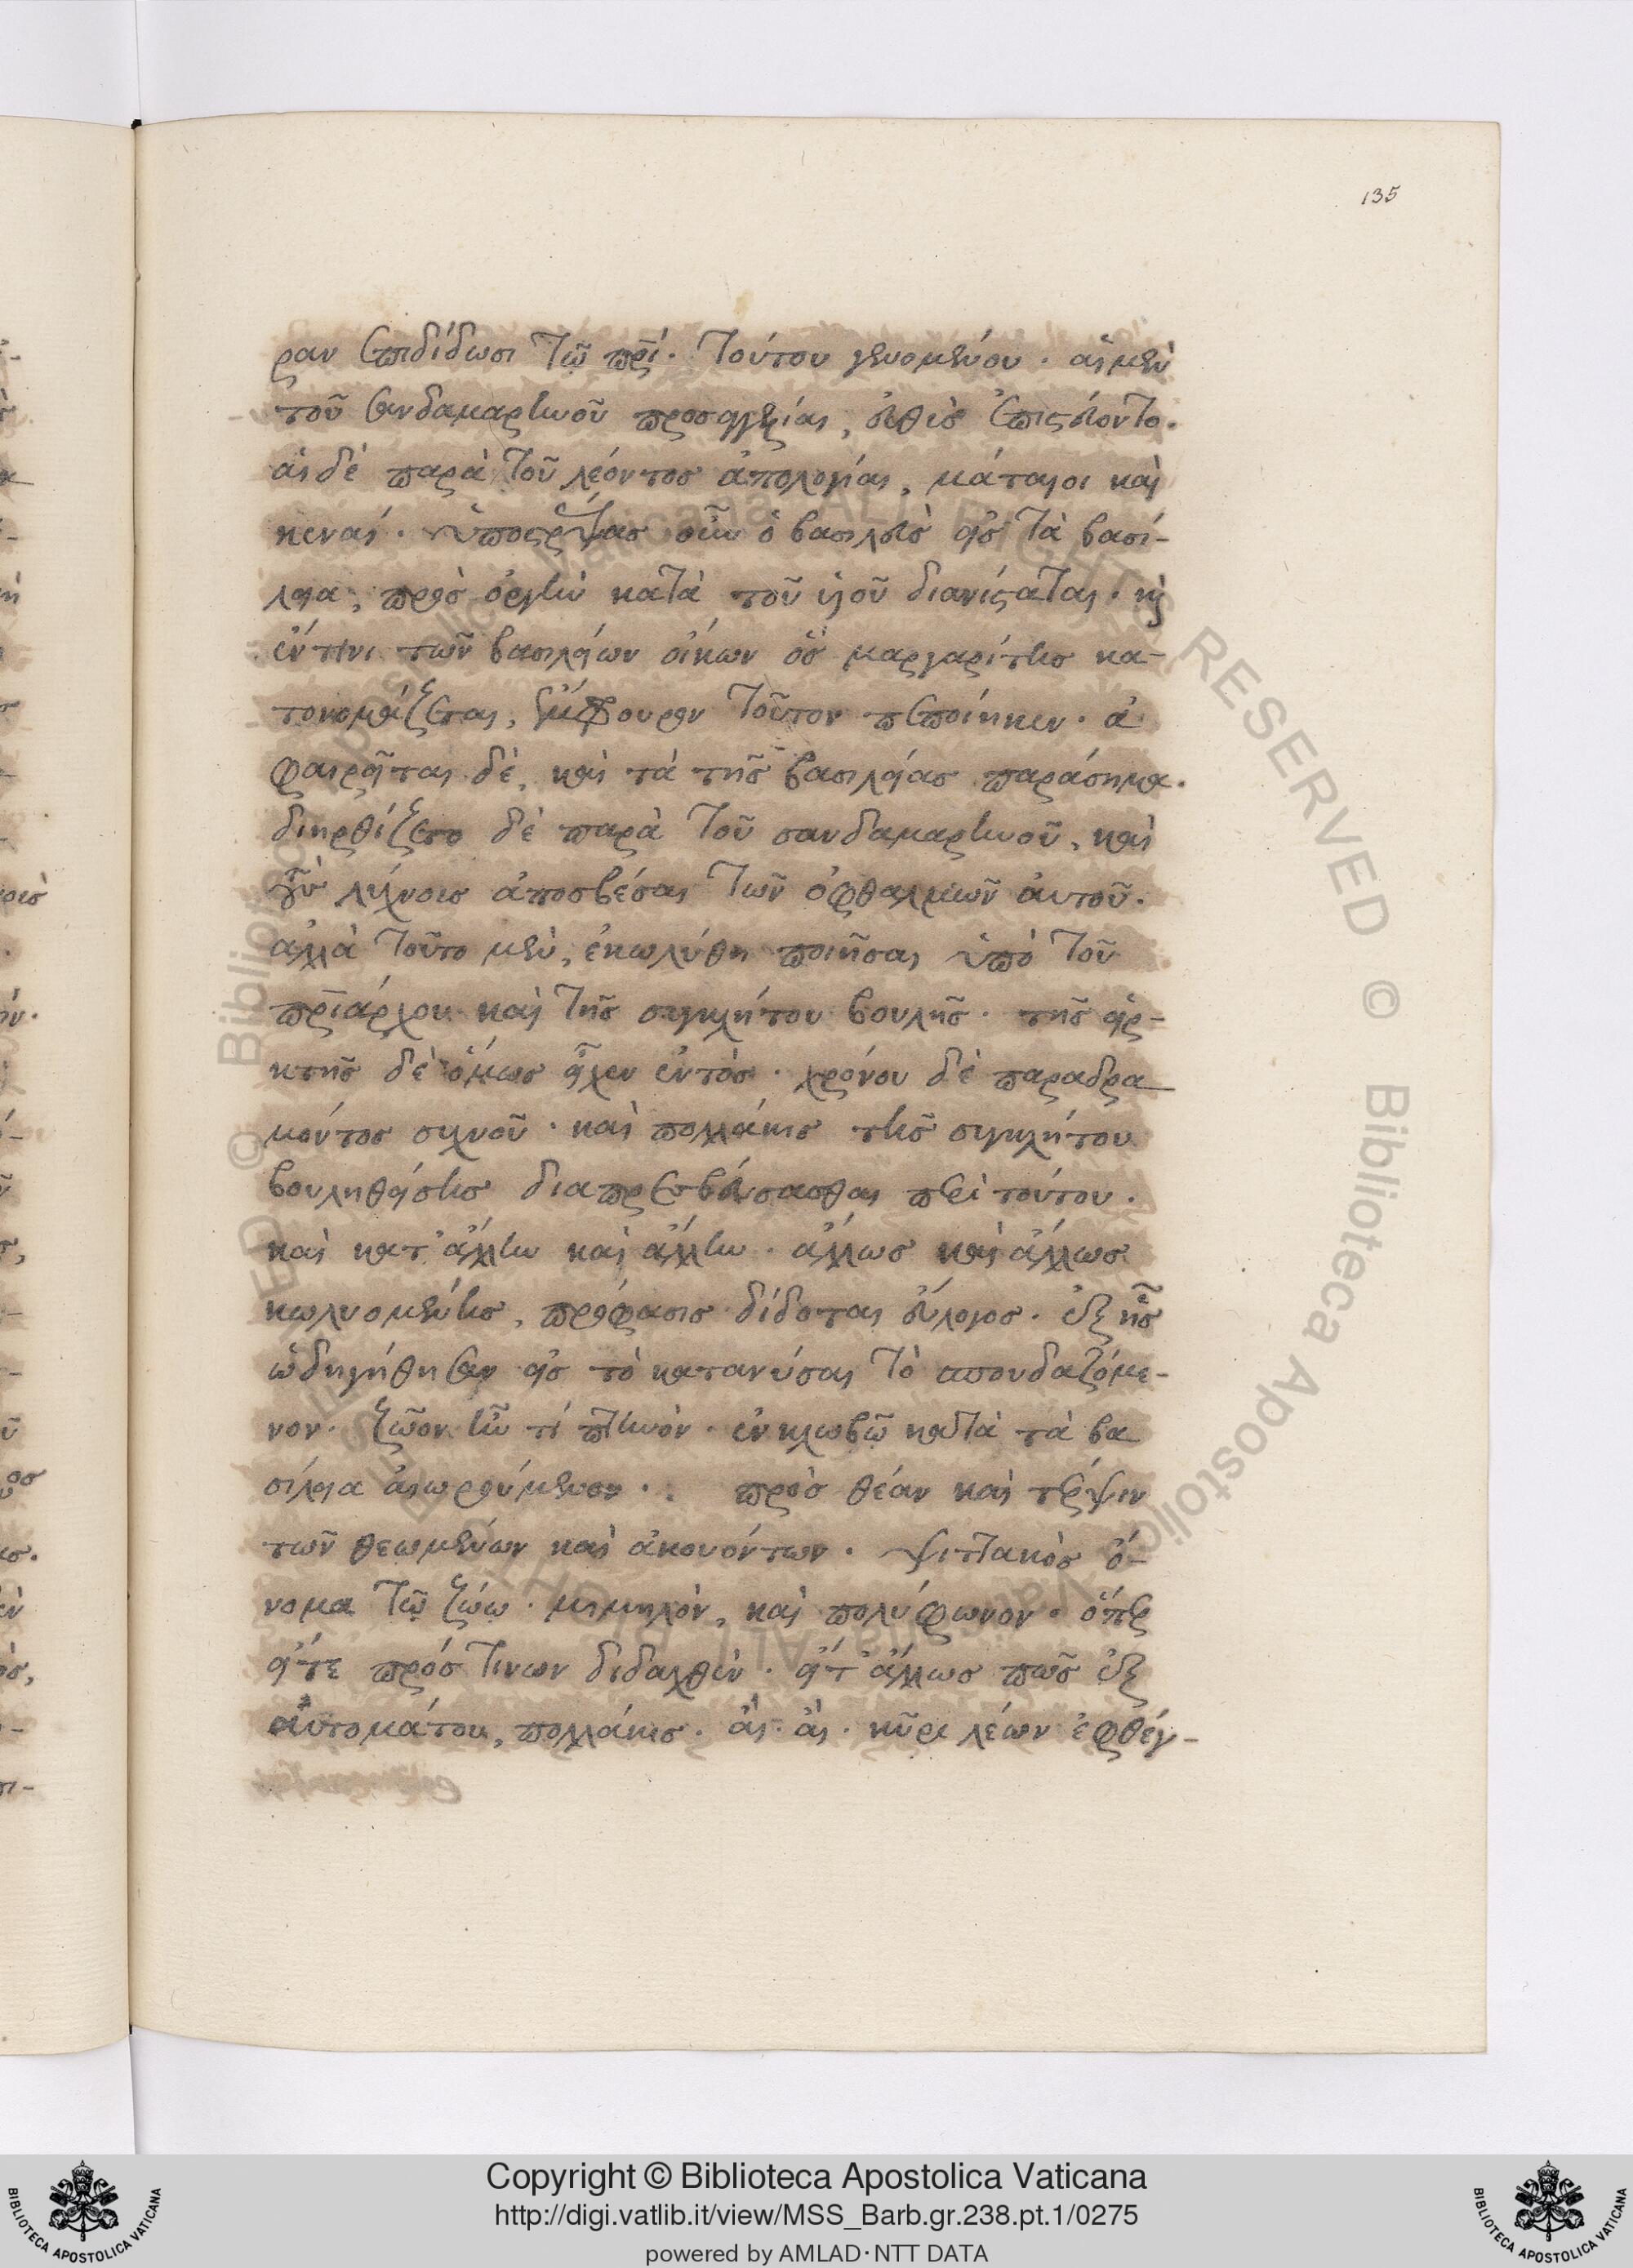 135
ραν ἐπιδίδωσι τῷ πρί· τούτου γενομένου· αἱ μὲν
τοῦ σανδαμαρηνοῦ προσαγγελίαι, εὐθὺς ἐπιστεύοντο·
αἱ δὲ παρὰ τοῦ λέοντος ἀπολογίαι, μάταιοι καὶ
κεναί· ὑποστρέψας οὖν ὁ βασιλεὺς εἰς τὰ βασί-
λεια, πρὸς ὀργὴν κατὰ τοῦ υἱοῦ διανίσταται· κ
ἐν τινι τῶν βασιλείων οἴκων ὃς μαργαρίτης κα-
τονομάζεται, ἔμφρουρον τοῦτον πεποίηκεν· ἀ
φαιρεῖται δὲ, καὶ τὰ τῆς βασιλείας παράσημα·
διηρεθίζετο δὲ παρὰ τοῦ σανδαμαρηνοῦ, καὶ
τοὺς λύχνοις ἀποσβέσαι τῶν ὀφθαλμῶν αὐτοῦ·
ἀλλὰ τοῦτο μὲν, ἐκωλύθη ποιῆσαι ὑπὸ τοῦ
πριάρχου καὶ τῆς συγκλήτου βουλῆς· τῆς εἱρ-
κτῆς δὲ ὅμως εἶχεν ἐντός· χρόνου δὲ παραδρα
μόντος συχνοῦ· καὶ πολλάκις τῆς συγκλήτου
βουληθείσης διαπρεσβεύσασθαι περὶ τούτου·
καὶ κατ' ἄλλην καὶ ἄλλην· ἄλλως καὶ ἄλλως
κωλυομένης, πρόφασις δίδοται εὔλογος· ἐξ ἧς
ὡδηγήθησαν εἰς τὸ κατανύσαι τὸ σπουδαζόμε-
νον· ζῶον ἦν τί πτηνὸν· ἐν κλωβῷ κατὰ τὰ βα
σίλεια αἰωρούμενον·. πρὸς θέαν καὶ τέρψιν
τῶν θεωμένων καὶ ἀκουόντων· ψιττακὸς ὄ-
νομα τῷ ζώῳ· μιμηλὸν, καὶ πολύφωνον· ὅπερ
εἴτε πρός τινων διδαχθὲν· εἴτ' ἄλλως πῶς ἐξ
αὐτομάτου, πολλάκις· ἂι· ἂι· κῦρι λέων ἐφθέγ-
Copyright © Biblioteca Apostolica Vaticana
http://digi.vatlib.it/view/MSS_Barb.gr.238.pt.1/0275
powered by AMLAD·NTT DATA